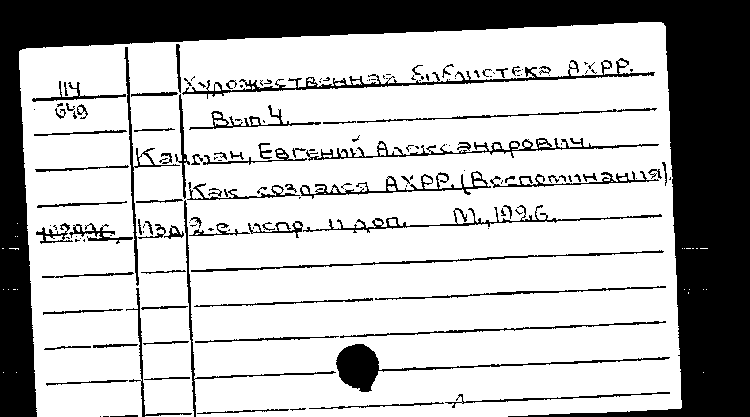 114 Художественная библиотека АХРР.
649 Вып. 4.
Кацман, Евгений Александрович.
Как создался АХРР. (Воспоминания).
Изд 2-е, испр. и доп. М., 1926.